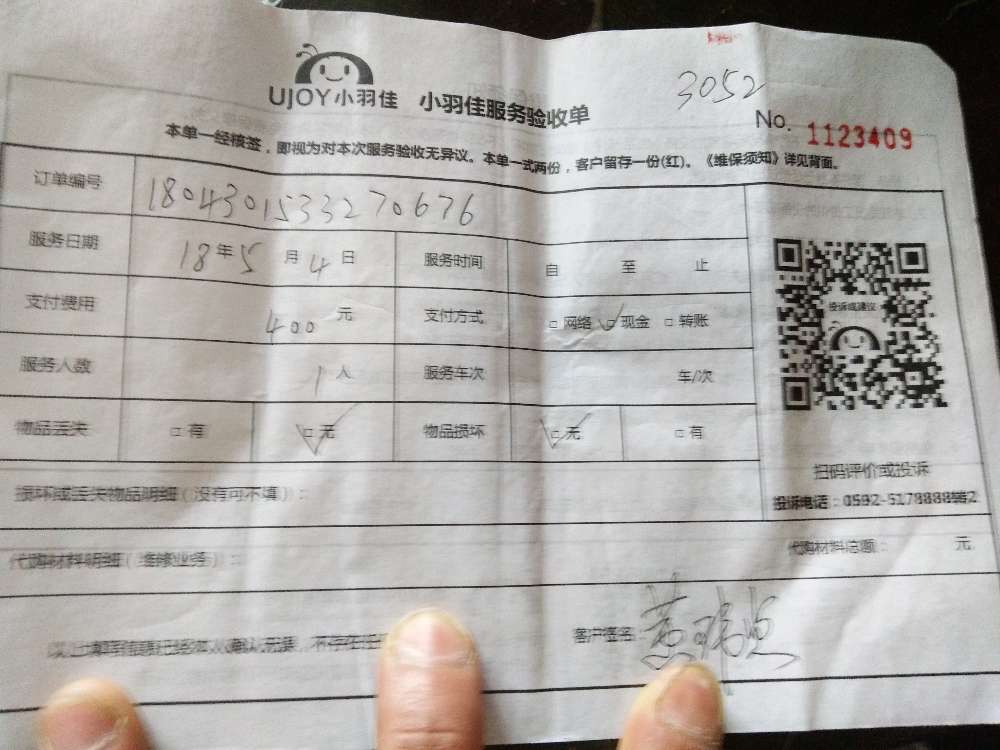 3052
UJOY小羽佳 小羽佳服务验收单
No. 1123409
本单一经核签，即视为对本次服务验收无异议。本单一式两份，客户留存一份(红)。《维保须知》详见背面。
订单编号 1804301533270676
服务日期 18年5月4日 服务时间 自 至 止
支付费用 400元 支付方式 □网络 ☑现金 □转账
服务人数 1人 服务车次 车/次
物品丢失 □有 ☑无 物品损坏 ☑无 □有
投诉或建议
扫码评价或投诉
投诉电话：0592-5178888
损坏或丢失物品明细(没有可不填)：
代购材料明细(维修业务)： 代购材料总额： 元
以上填写信息已经本人确认无误，不存在任
客户签名：